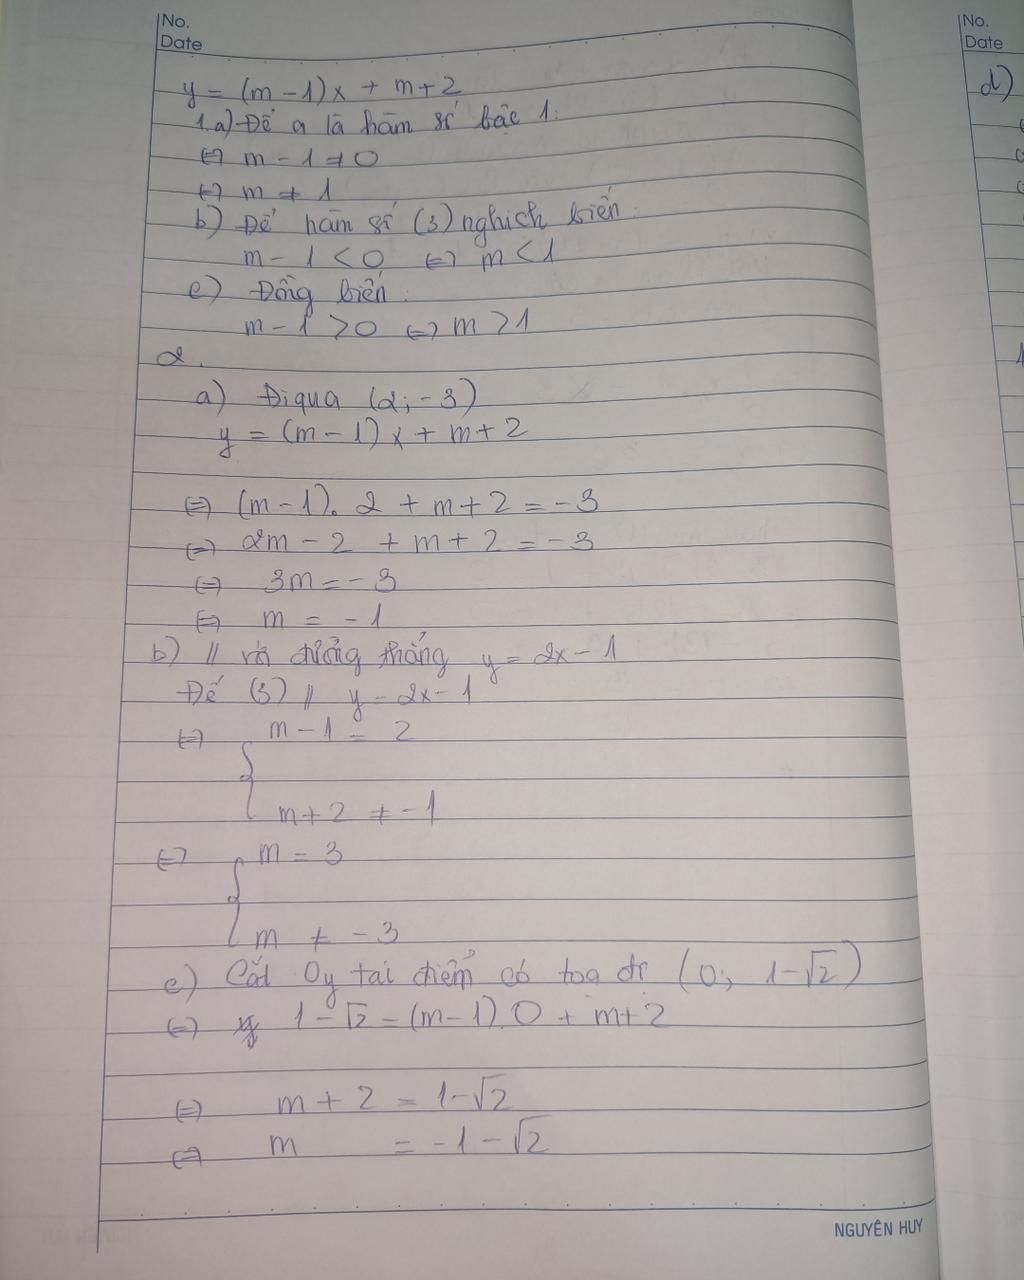 No.
Date
y = (m - 1)x + m + 2
1.a) Để a là hàm số bậc 1:
⇔ m - 1 ≠ 0
⇔ m ≠ 1
b) Để hàm số (3) nghịch biến:
m - 1 < 0 ⇔ m < 1
c) Đồng biến:
m - 1 > 0 ⇔ m > 1
2.
a) Đi qua (2; -3)
y = (m - 1)x + m + 2
⇔ (m - 1). 2 + m + 2 = -3
⇔ 2m - 2 + m + 2 = -3
⇔ 3m = -3
⇔ m = -1
b) // với đường thẳng y = 2x - 1
Để (3) // y = 2x - 1
⇔ { m - 1 = 2
m + 2 ≠ -1
⇔ { m = 3
m ≠ -3
c) Cắt Oy tại điểm có toạ độ (0; 1-√2)
⇔ 1 - √2 = (m - 1).0 + m + 2
⇔ m + 2 = 1-√2
⇔ m = -1 - √2
NGUYÊN HUY
No.
Date
d)